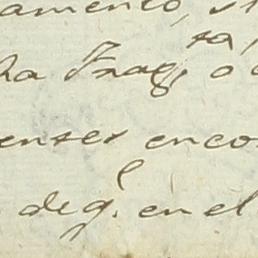 amento,
ha Frag.ta, o
entes enco
de q.e en el